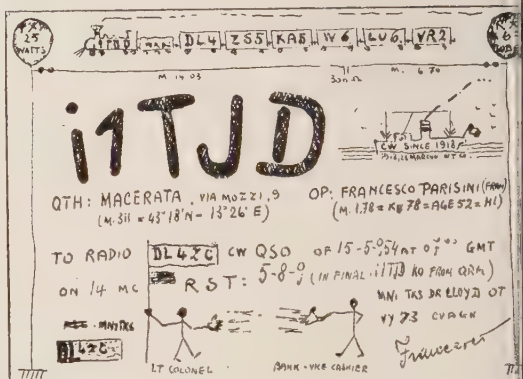 25
WATTS
DL4 ZS5 KA5 W6 LU6 VR2
M 14.03
300 Ω
M. 6.70
i1TJD
CW SINCE 1918
QTH: MACERATA, VIA MOZZI, 9
(M. 311 = 43° 18' N - 13° 26' E)
OP: FRANCESCO PARISINI (FRAN)
(M. 1.78 = KG 78 = AGE 52 = HI)
TO RADIO DL4ZC CW QSO OF 15-5- 54 AT GMT
ON 14 MC RST: 5-8-9 (IN FINAL i1TJD KO FROM QRM)
MNI TKS DR LLOYD OT
VY 73 CUAGN
DL4ZC
LT COLONEL
BANK - VICE CASHIER